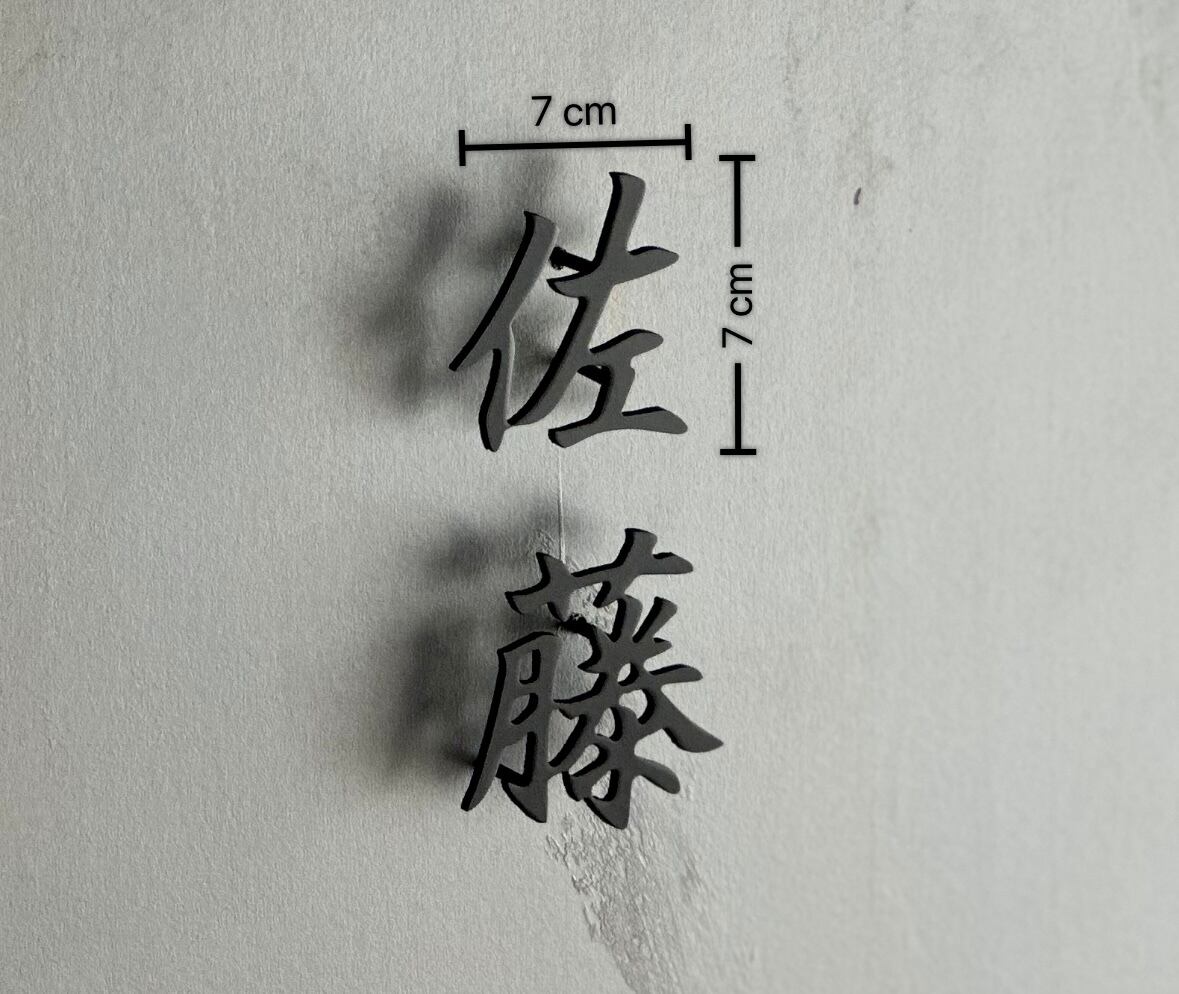 7 cm
佐
7 cm
藤